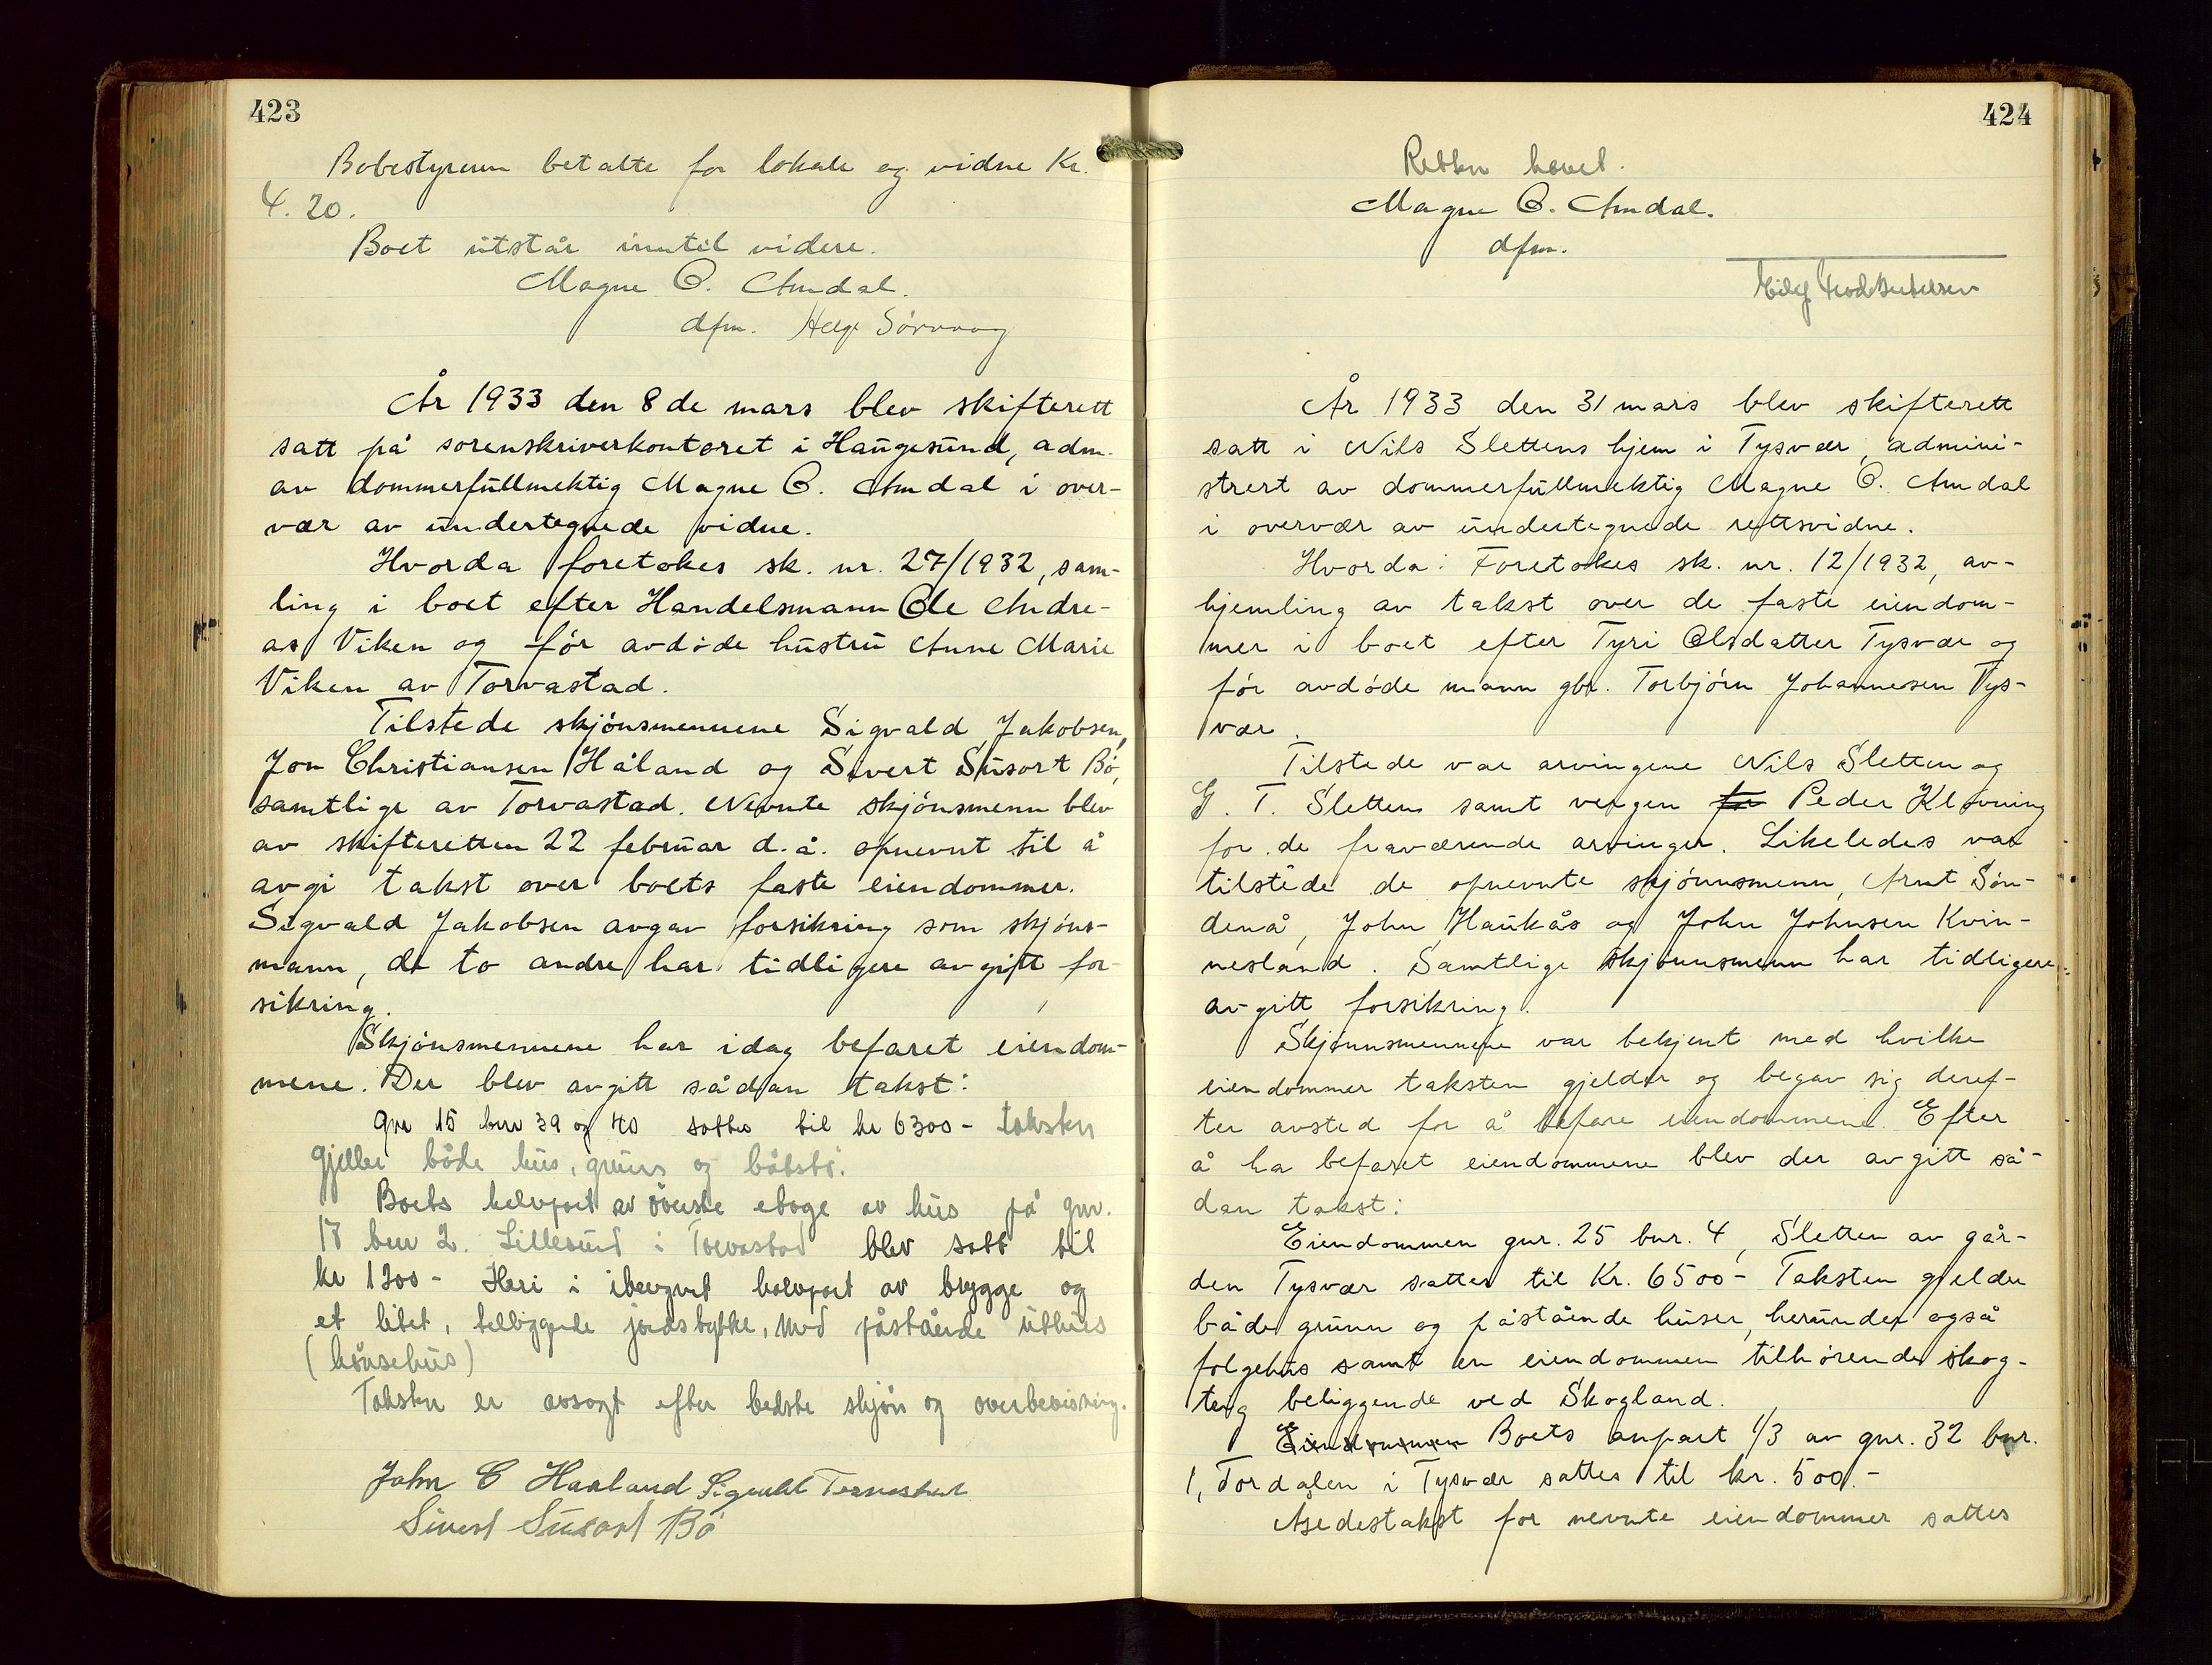 423
Bobestyreren betalte for lokale og vidne Kr.
4.20.
Boet utstår inntil videre.
Magne O. Amdal.
dfm. Helge
År 1933 den 8de mars blev skifterett
satt på sorenskriverkontoret i Haugesund, adm.
av dommerfullmektig Magne O. Amdal i over-
vær av undertegnede vidne.
Hvorda foretokes sk. nr. 27/1932, sam-
ling i boet efter Handelsmann Ole Andre-
as Viken og før avdøde hustru Anne Marie
Viken av Torvastad.
Tilstede skjønsmennene Sigvald Jakobsen,
Jon Christiansen Håland og Sivert Susort Bø,
samtlige av Torvastad. Nevnte skjønsmenn blev
av skifteretten 22 februar d.å. opnevnt til å
avgi takst over boets faste eiendommer.
Sigvald Jakobsen avgav forsikring som skjøns-
mann, de to andre har tidligere avgitt for-
sikring.
Skjønsmennene har idag befaret eiendom-
mene. Der blev avgitt sådan takst:
gnr 15 bnr 39 og 40 sattes til kr 6300 - taksten
gjelder både hus, grunn og båtstø.
Boets halvpart av øverste etage av hus på gnr.
17 bnr 2. Lillesund i Torvastad blev satt til
kr 1200 - Heri i iberegnet halvpart av brygge og
et litet, tilliggende jordstykke, med påstående uthus
(hønsehus)
Taksten er avsagt efter bedste skjøn og overbevisning.
John C Haaland Sigvald
Sivert Susort Bø
424
Retten hevet.
Magne O. Amdal.
dfm.
År 1933 den 31 mars blev skifterett
satt i Nils Slettens hjem i Tysvær, admini-
strert av dommerfullmektig Magne O. Amdal
i overvær av undertegnede rettsvidne.
Hvorda: Foretokes sk. nr. 12/1932, av-
hjemling av takst over de faste eiendom-
mer i boet efter Tyri Olsdatter Tysvær og
før avdøde mann gbr. Torbjørn Johannesen Tys-
vær.
Tilstede var arvingene Nils Sletten og
G. T. Sletten samt vergen for Peder Kløvning
for de fraværende arvinger. Likeledes var
tilstede de opnevnte skjønnsmenn, Arnt Søn-
denå, John Haukås og John Johnsen Kvin-
nesland. Samtlige skjønnsmenn har tidligere
avgitt forsikring.
Skjønnsmennene var bekjent med hvilke
eiendommer taksten gjelder og begav sig deref-
ter avsted for å befare eiendommene. Efter
å ha befaret eiendommene blev der avgitt så-
dan takst:
Eiendommen gnr. 25 bnr. 4, Sletten av går-
den Tysvær sattes til Kr. 6500 - Taksten gjelder
både grunn og påstående huser, herunder også
følgehus samt en eiendommen tilhørende skog-
teig beliggende ved Skogland.
Eiendommen Boets anpart 1/3 av gnr. 32 bnr.
1, Tordalen i Tysvær sattes til kr. 500.-
Åsedestakst for nevnte eiendommer sattes